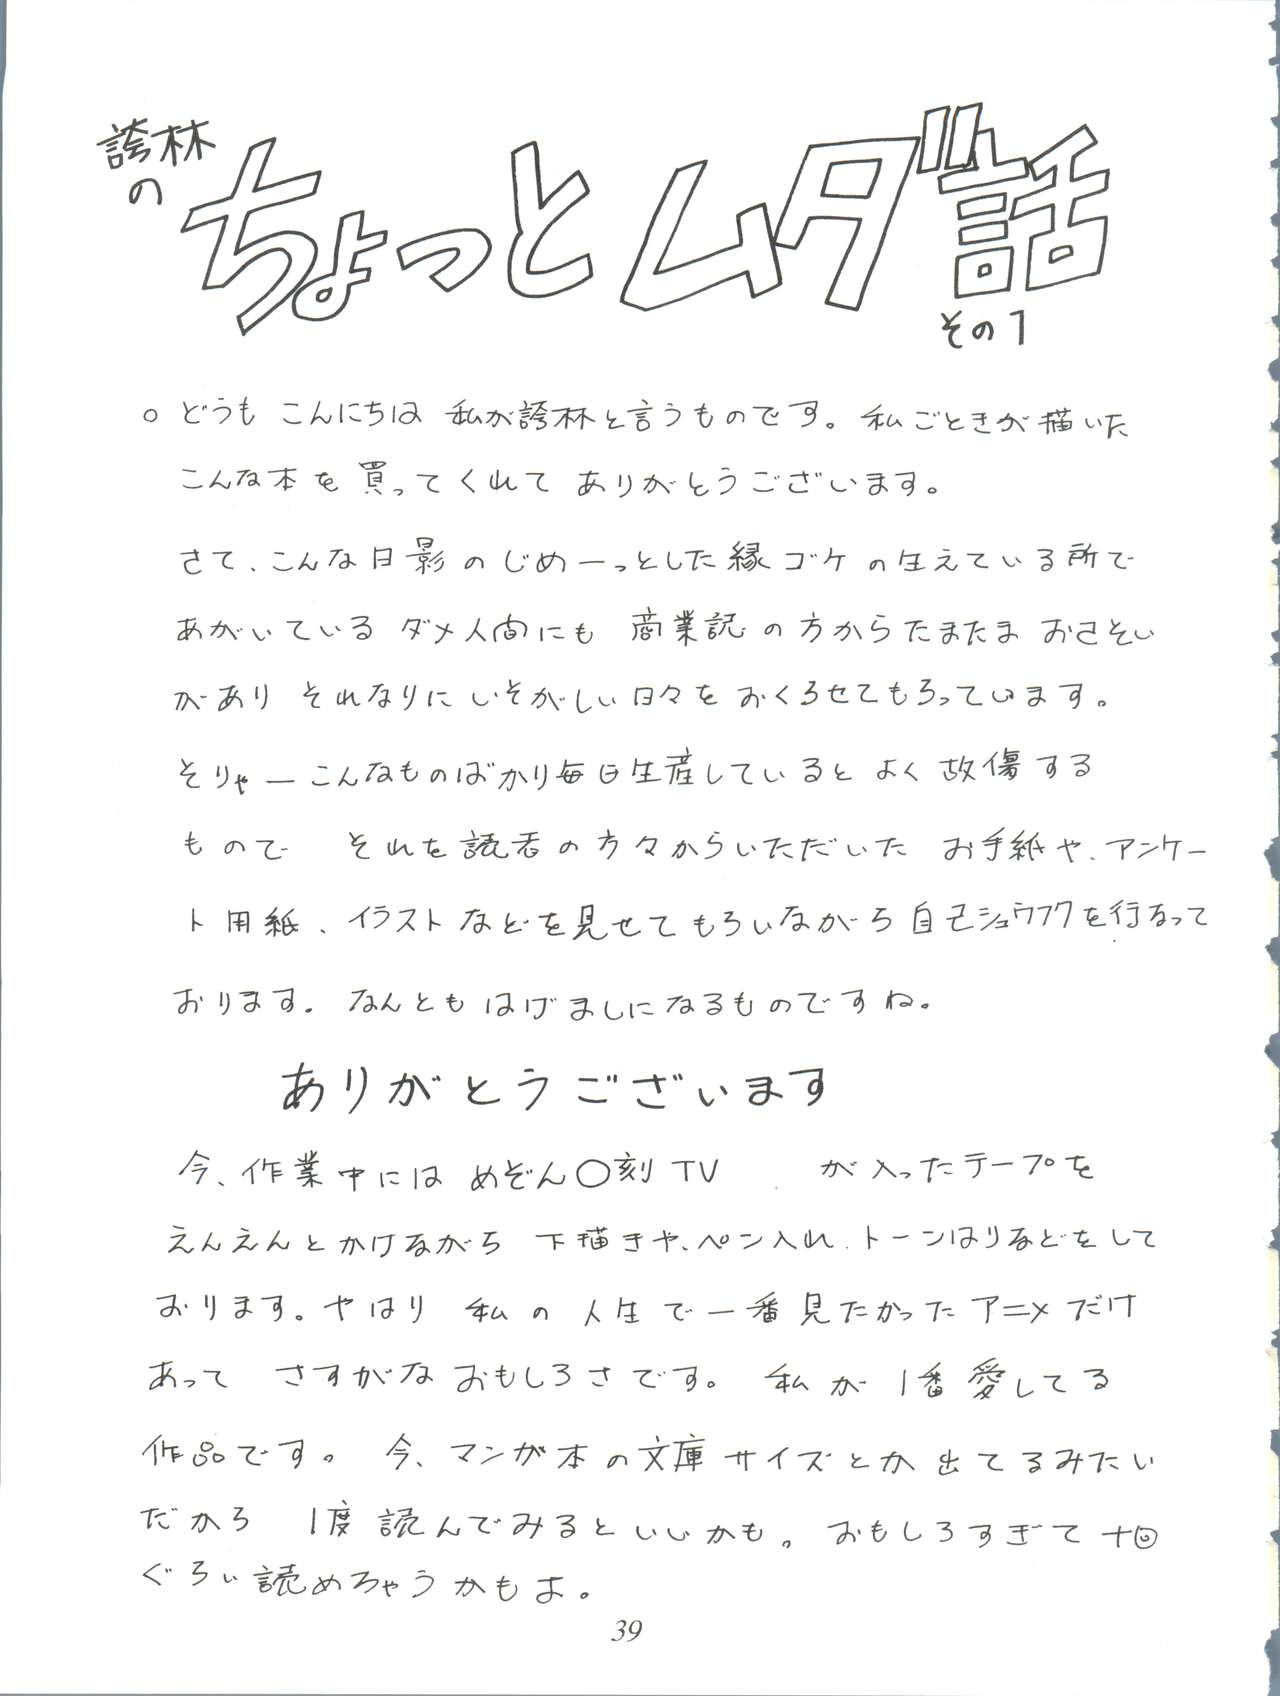 誇林
の
ちょっとムダ話
その1
○ どうも こんにちは 私が誇林と言うものです。私ごときが描いた
こんな本を買ってくれて ありがとうございます。
さて、こんな日影のじめーっとした縁ゴケの生えている所で
あがいている ダメ人間にも 商業誌の方からたまたま おさそい
があり それなりに いそがしい日々を おくらせてもらっています。
そりゃーこんなものばかり毎日生産していると よく故傷する
もので それを読者の方々からいただいた お手紙や、アンケー
ト用紙、イラストなどを見せてもらいながら 自己シュウフクを行なって
おります。なんとも はげましになるものですね。
ありがとうございます
今、作業中には めぞん○刻TV が入ったテープを
えんえんとかけながら 下描きや、ペン入れ、トーンはりなどをして
おります。やはり 私の 人生で一番見たかったアニメだけ
あって さすがなおもしろさです。 私が 1番愛してる
作品です。 今、マンガ本の文庫サイズとか出てるみたい
だから 1度読んでみるといいかも。おもしろすぎて十回
ぐらい読めちゃうかもよ。
39